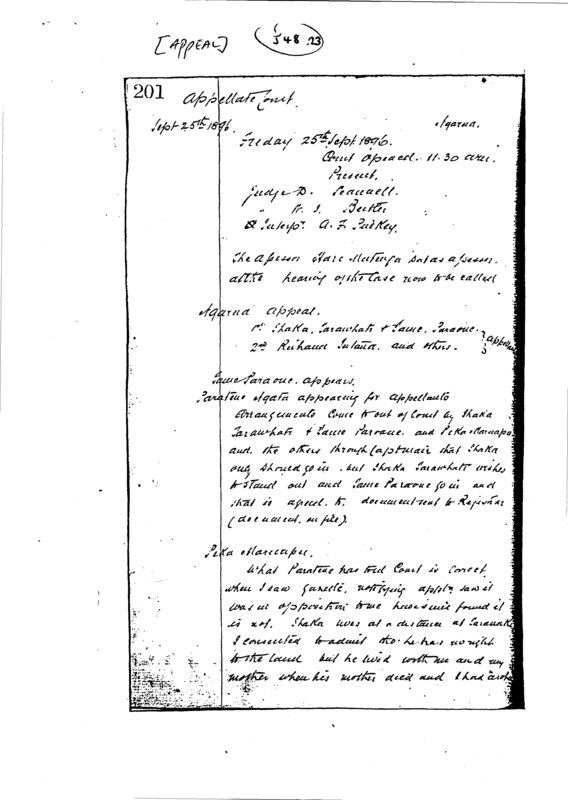 [APPEAL] J 48 23
201 Appellate Court.
Sept 25th 1896. Ngarua.
Friday 25th Sept 1896.
Court opened. 11.30 a.m.
Present.
Judge D. Scannell.
" W. J. Butler
& Interpr. A. F. Puckey.
The assessor Hare Matenga sat as assessor
at the hearing of the Case now to be called
Ngarua Appeal.
1st Shaka, Tarawhata & Tame. Paraone.
2nd and others.
Tame Paraone. appears.
Paratene Ngata appearing for Appellants
Arrangements Come to out of Court by Shaka
Tarawhata & Tame Paroane. and Peka
and. the others through that Shaka
only should go in. but Shaka Tarawhata wishes
to stand out and Tame Paraone go in and
that is agreed. to. document sent to Registrar
(document. on file).
Peka
What Paratene has told Court is correct
when I saw Gazette, notifying applt. saw it
was in opposition to me have since found it
is not. Shaka lives at a distance at Taranaki
I consented to admit tho. he has no right
to the land but he lived with me and my
mother when his mother died and I